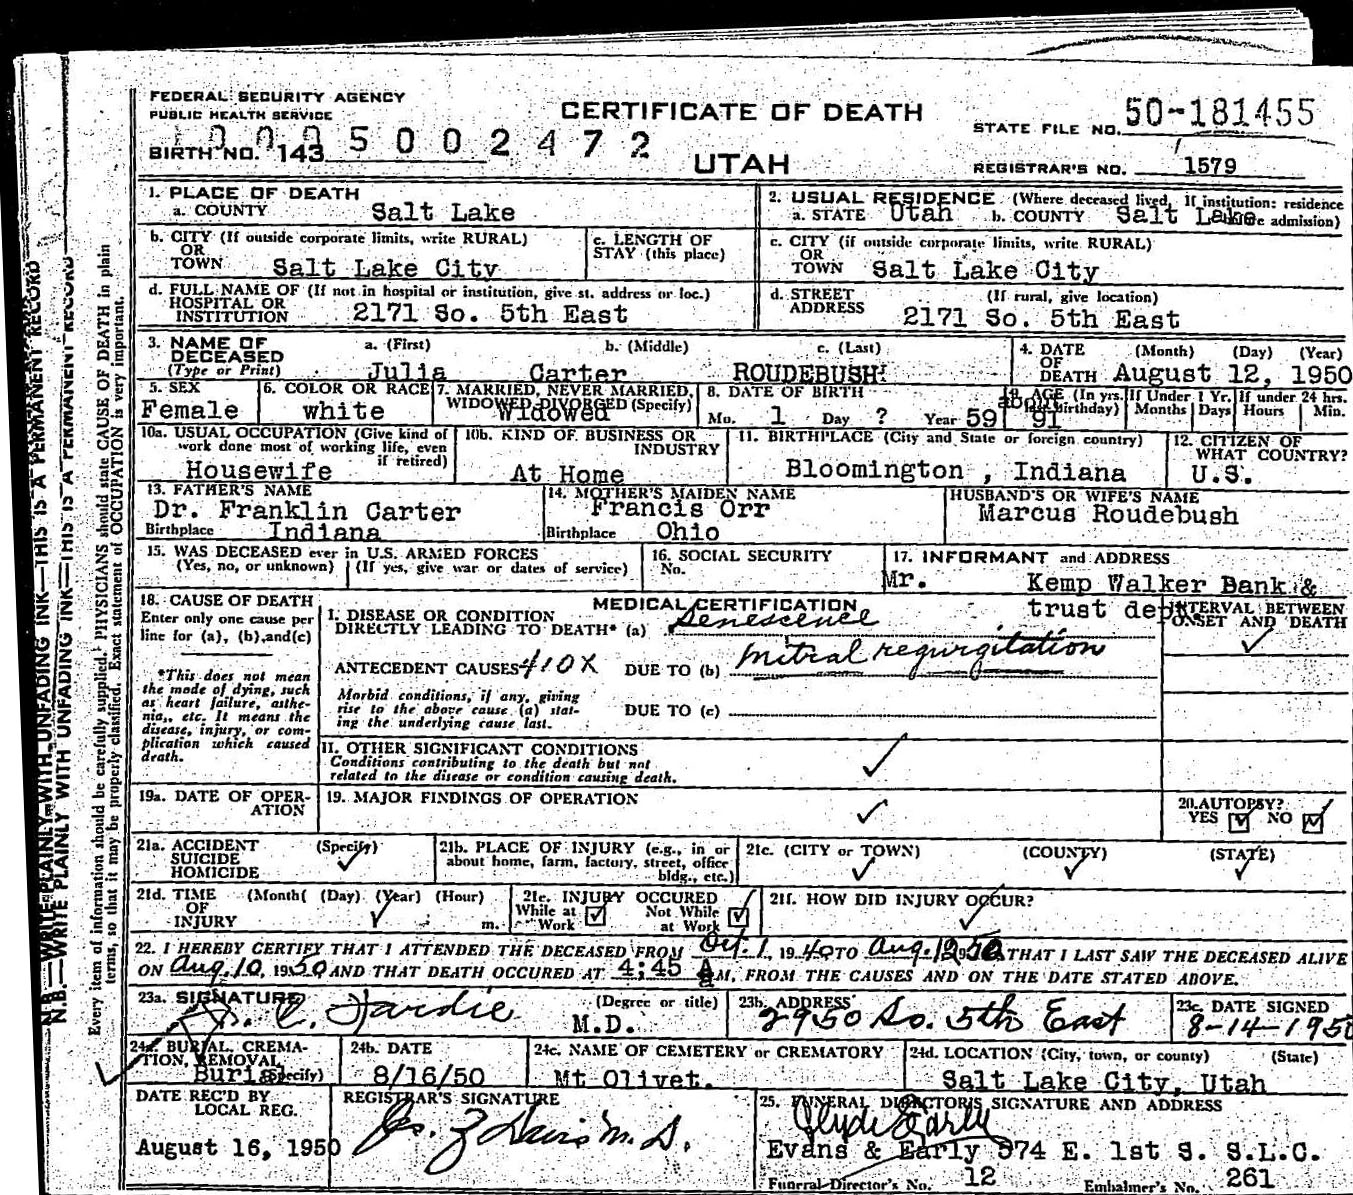 FEDERAL SECURITY AGENCY
PUBLIC HEALTH SERVICE
CERTIFICATE OF DEATH
STATE FILE NO. 50-181455
0 0 0 5 0 0 2 4 7 2
BIRTH NO. 143
UTAH
REGISTRAR'S NO. 1579
1. PLACE OF DEATH
a. COUNTY Salt Lake
2. USUAL RESIDENCE (Where deceased lived, If institution: residence
a. STATE Utah b. COUNTY Salt Lake admission)
b. CITY (If outside corporate limits, write RURAL)
OR
TOWN Salt Lake City
c. LENGTH OF
STAY (this place)
c. CITY (if outside corporate limits, write RURAL)
OR
TOWN Salt Lake City
d. FULL NAME OF (If not in hospital or institution, give st. address or loc.)
HOSPITAL OR
INSTITUTION 2171 So. 5th East
d. STREET
ADDRESS
(If rural, give location)
2171 So. 5th East
3. NAME OF
DECEASED
(Type or Print)
a. (First) b. (Middle) c. (Last)
Julia Carter ROUDEBUSH
4. DATE
OF
DEATH
(Month) (Day) (Year)
August 12, 1950
5. SEX
Female
6. COLOR OR RACE
white
7. MARRIED, NEVER MARRIED,
WIDOWED, DIVORCED (Specify)
Widowed
8. DATE OF BIRTH
Mo. 1 Day ? Year 59
9. AGE (In yrs. last birthday)
about 91
If Under 1 Yr.
Months Days
If under 24 hrs.
Hours Min.
10a. USUAL OCCUPATION (Give kind of
work done most of working life, even
if retired)
Housewife
10b. KIND OF BUSINESS OR
INDUSTRY
At Home
11. BIRTHPLACE (City and State or foreign country)
Bloomington , Indiana
12. CITIZEN OF
WHAT COUNTRY?
U.S.
13. FATHER'S NAME
Dr. Franklin Carter
Birthplace Indiana
14. MOTHER'S MAIDEN NAME
Francis Orr
Birthplace Ohio
HUSBAND'S OR WIFE'S NAME
Marcus Roudebush
15. WAS DECEASED ever in U.S. ARMED FORCES
(Yes, no, or unknown) (If yes, give war or dates of service)
16. SOCIAL SECURITY
No.
17. INFORMANT and ADDRESS
Mr. Kemp Walker Bank &
trust dept
18. CAUSE OF DEATH
Enter only one cause per
line for (a), (b),and(c)
*This does not mean
the mode of dying, such
as heart failure, asthe-
nia,, etc. It means the
disease, injury, or com-
plication which caused
death.
MEDICAL CERTIFICATION
I. DISEASE OR CONDITION
DIRECTLY LEADING TO DEATH* (a) Senescence
INTERVAL BETWEEN
ONSET AND DEATH
ANTECEDENT CAUSES 410X DUE TO (b) mitral regurgitation
Morbid conditions, if any, giving
rise to the above cause (a) stat-
ing the underlying cause last.
DUE TO (c)
II. OTHER SIGNIFICANT CONDITIONS
Conditions contributing to the death but not
related to the disease or condition causing death.
19a. DATE OF OPER-
ATION
19. MAJOR FINDINGS OF OPERATION
20. AUTOPSY?
YES NO
21a. ACCIDENT
SUICIDE
HOMICIDE
(Specify)
21b. PLACE OF INJURY (e.g., in or
about home, farm, factory, street, office
bldg., etc.)
21c. (CITY or TOWN) (COUNTY) (STATE)
21d. TIME
OF
INJURY
(Month( (Day) (Year) (Hour)
m.
21e. INJURY OCCURED
While at
Work
Not While
at Work
21f. HOW DID INJURY OCCUR?
22. I HEREBY CERTIFY THAT I ATTENDED THE DECEASED FROM Oct. 1, 1940 TO Aug. 12 1950 THAT I LAST SAW THE DECEASED ALIVE
ON Aug. 10, 1950 AND THAT DEATH OCCURED AT 4:45 A M, FROM THE CAUSES AND ON THE DATE STATED ABOVE.
23a. SIGNATURE (Degree or title)
C. Hardie M.D.
23b. ADDRESS
2950 So. 5th East
23c. DATE SIGNED
8-14-1950
24a. BURIAL, CREMA-
TION, REMOVAL,
Burial (Specify)
24b. DATE
8/16/50
24c. NAME OF CEMETERY or CREMATORY
Mt Olivet.
24d. LOCATION (City, town, or county) (State)
Salt Lake City, Utah
DATE REC'D BY
LOCAL REG.
August 16, 1950
REGISTRAR'S SIGNATURE
25. FUNERAL DIRECTOR'S SIGNATURE AND ADDRESS
Clyde Early
Evans & Early 574 E. 1st S. S.L.C.
Funeral Director's No. 12 Embalmer's No. 261
N.B.—WRITE PLAINLY WITH UNFADING INK—THIS IS A PERMANENT RECORD
N.B.—WRITE PLAINLY WITH UNFADING INK—THIS IS A PERMANENT RECORD
Every item of information should be carefully supplied. PHYSICIANS should state CAUSE OF DEATH in plain
terms, so that it may be properly classified. Exact statement of OCCUPATION is very important.